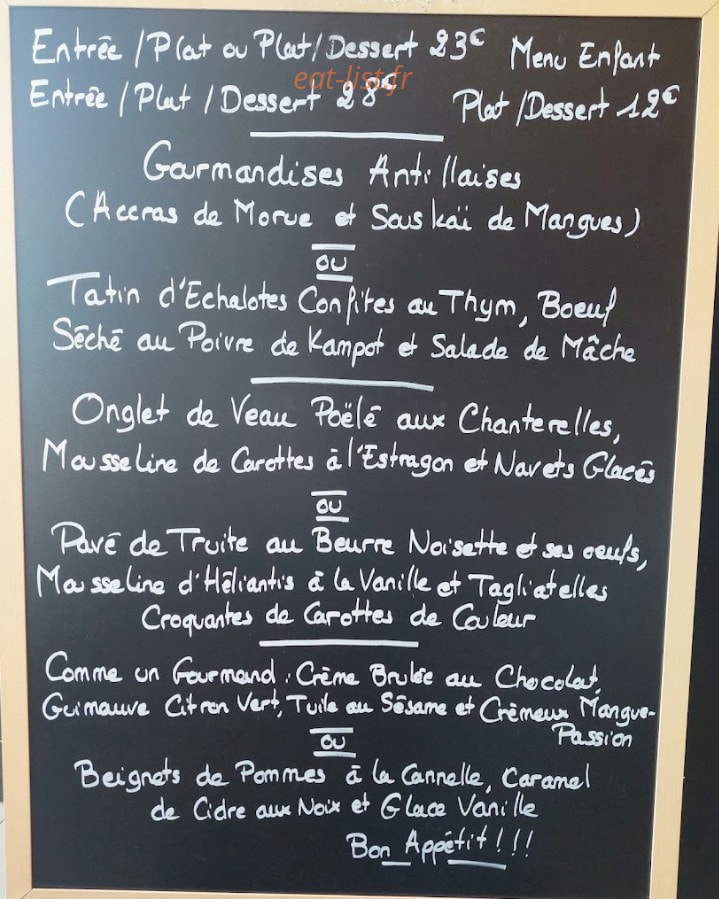 Entrée / Plat ou Plat / Dessert 23€ Menu Enfant
eat-list.fr
Entrée / Plat / Dessert 28€ Plat / Dessert 12€
Gourmandises Antillaises
(Accras de Morue et Souskaï de Mangues)
ou
Tatin d'Echalotes Confites au Thym, Boeuf
Séché au Poivre de Kampot et Salade de Mâche
Onglet de Veau Poëlé aux Chanterelles,
Mousseline de Carottes à l'Estragon et Navets Glacés
ou
Pavé de Truite au Beurre Noisette et ses oeufs,
Mousseline d'Héliantis à la Vanille et Tagliatelles
Croquantes de Carottes de Couleur
Comme un Gourmand : Crème Brulée au Chocolat,
Guimauve Citron Vert, Tuile au Sésame et Crèmeux Mangue-
Passion
ou
Beignets de Pommes à la Cannelle, Caramel
de Cidre aux Noix et Glace Vanille
Bon Appétit !!!